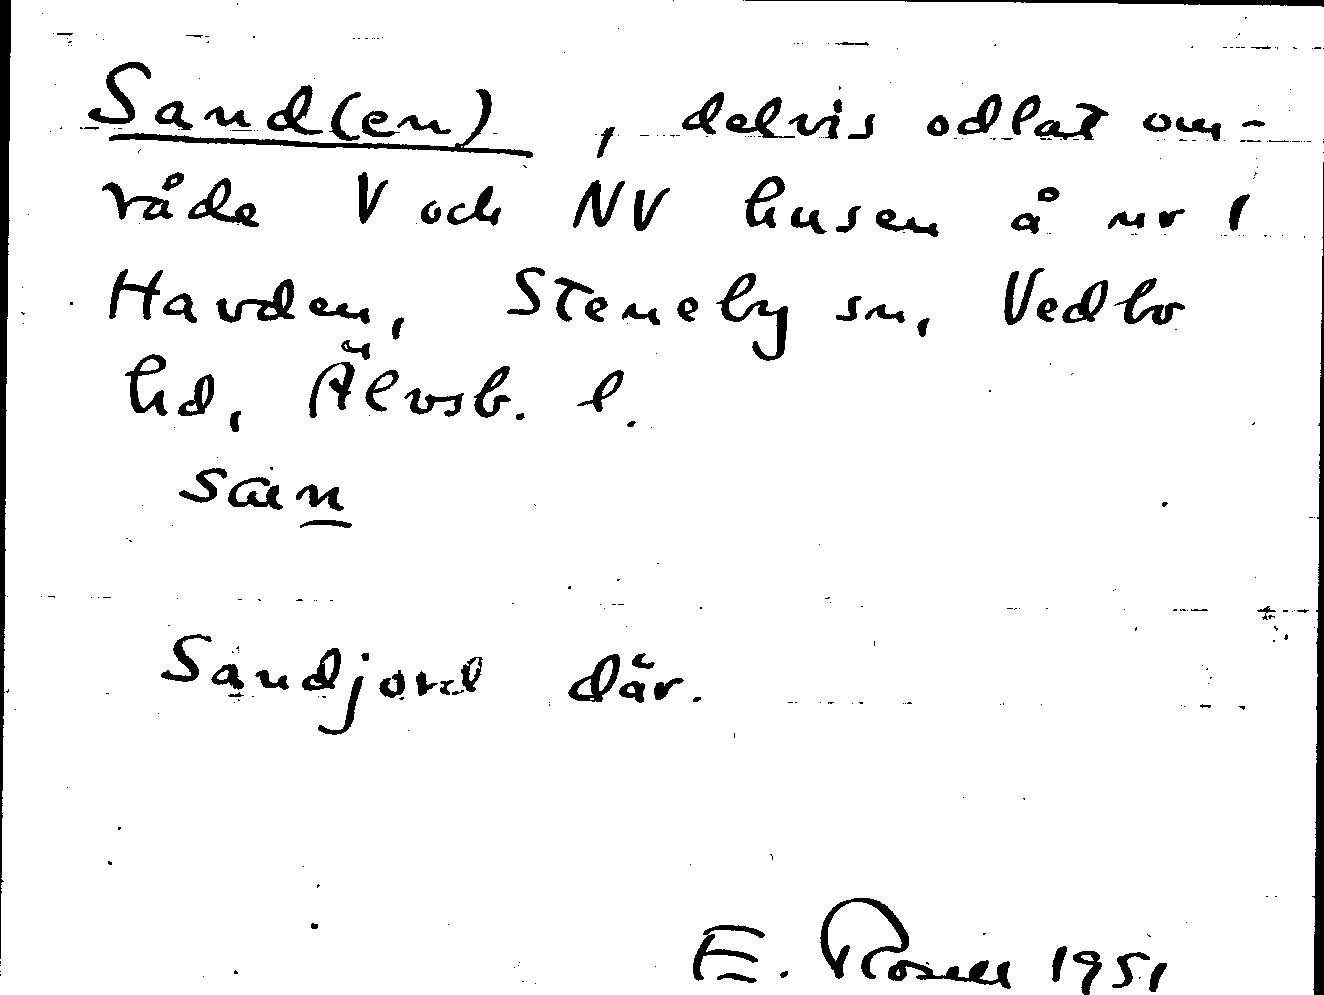 Sand(en), delvis odlat om-
råde V och NV husen å nr 1
Havden, Steneby sn, Vedbo
hd, Älvsb. l.
san
Sandjord där.
E. Rosell 1951